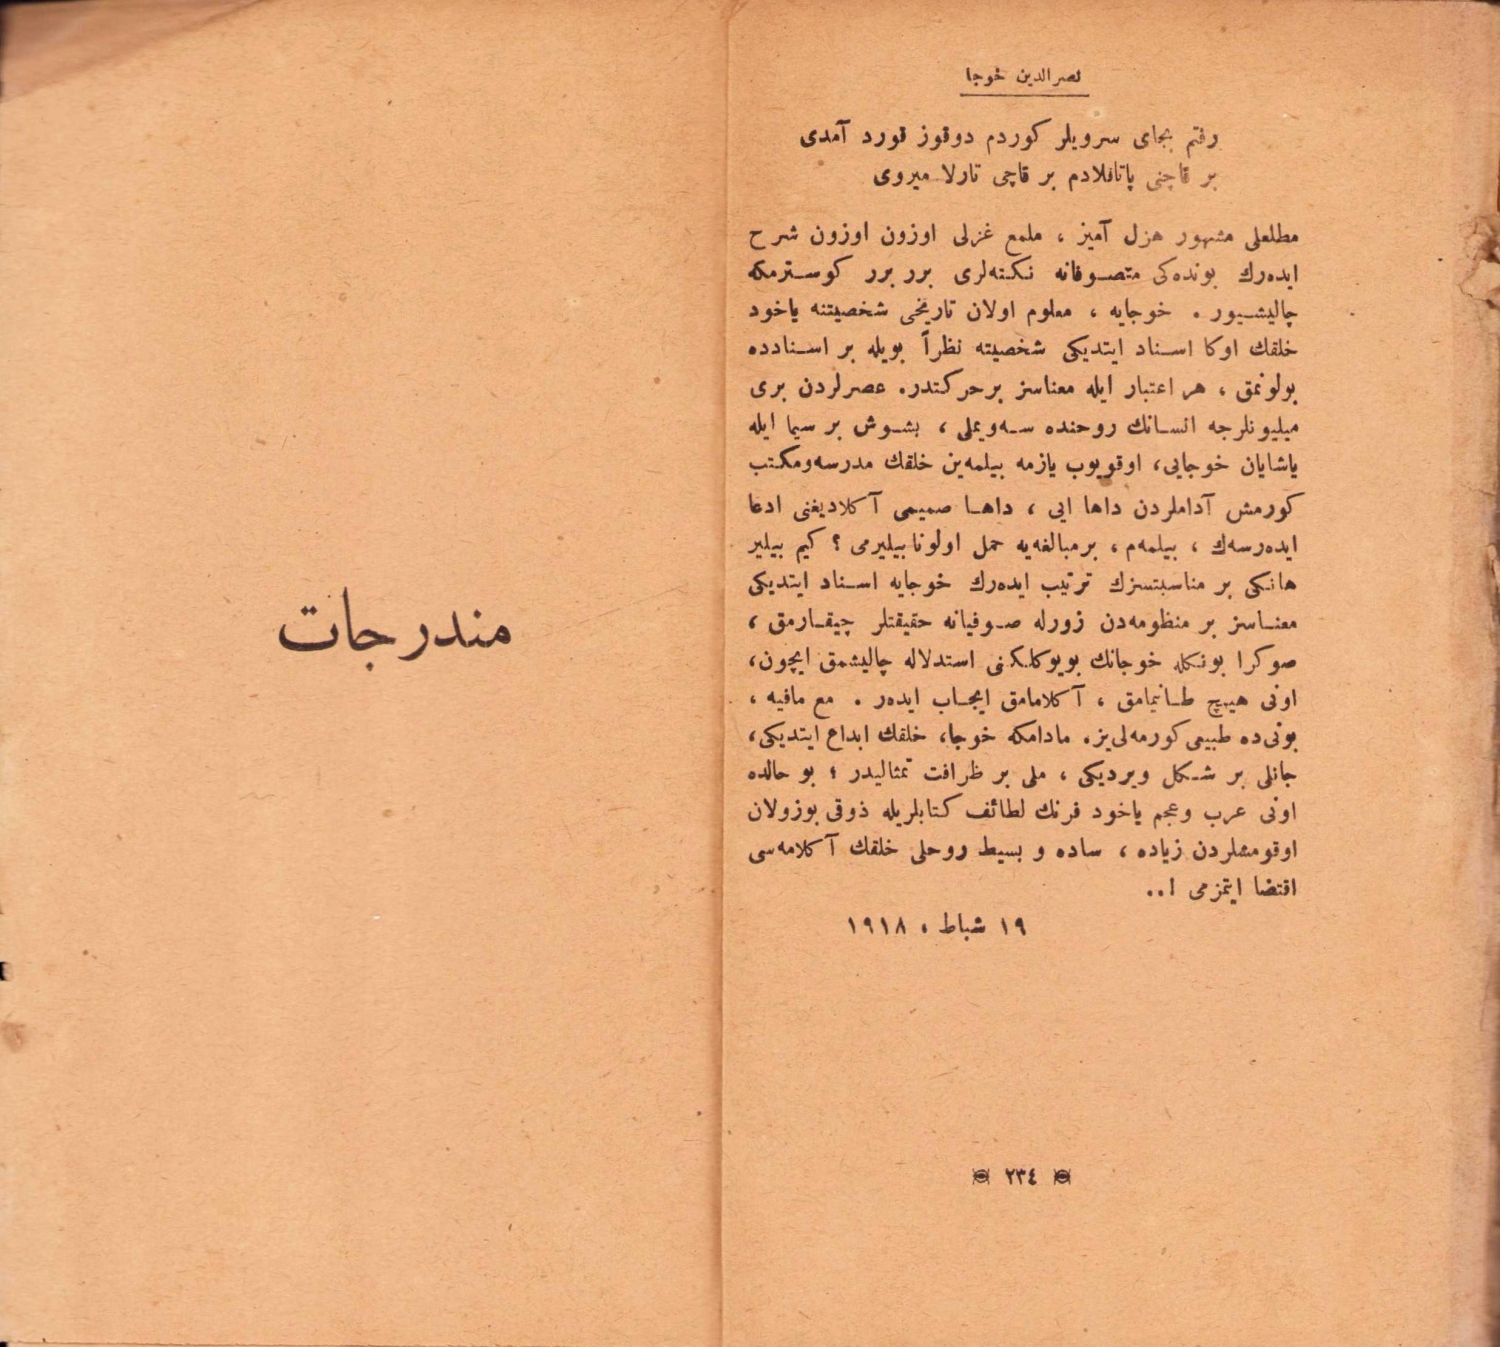 نصرالدين خوجا
رفتم بجای سرويلر كوردم دوقوز قورد آمدی
بر قاچنی پاتاقلادم بر قاچی تارلا ميروی
مطلعلی مشهور هزل آميز ، ملمع غزلی اوزون اوزون شرح
ايده‌رك بونده‌كی متصوفانه نكته‌لری برر برر كوسترمكه
چاليشيور . خوجايه ، معلوم اولان تاريخی شخصيتنه ياخود
خلقك اوكا اسناد ايتديكی شخصيته نظراً بويله بر اسنادده
بولونمق ، هر اعتبار ايله معناسز برحركتدر. عصرلردن بری
ميليونلرجه انسانك روحنده سه‌ويملی ، بشوش بر سيما ايله
ياشايان خوجايی، اوقويوب يازمه بيلمه‌ين خلقك مدرسه‌ومكتب
كورمش آداملردن داها ايی ، داها صميمی آكلاديغنی ادعا
ايده‌رسه‌ك ، بيلمه‌م ، برمبالغه‌يه حمل اولونابيليرمی ؟ كيم بيلير
هانكی بر مناسبتسزك ترتيب ايده‌رك خوجايه اسناد ايتديكی
معناسز بر منظومه‌دن زورله صوفيانه حقيقتلر چيقارمق ،
صوكرا بونكله خوجانك بويوكلكنی استدلاله چاليشمق ايچون،
اونی هيچ طانيمامق ، آكلامامق ايجاب ايده‌ر . مع مافيه ،
بونی‌ده طبيعی كورمه‌لی‌يز. مادامكه خوجا، خلقك ابداع ايتديكی،
جانلی بر شكل ويرديكی ، ملی بر ظرافت تمثاليدر ؛ بو حالده
اونی عرب وعجم ياخود فرنك لطائف كتابلريله ذوقی بوزولان
اوقومشلردن زياده ، ساده و بسيط روحلی خلقك آكلامه‌سی
اقتضا ايتمزمی !..
١٩ شباط ، ١٩١٨
٢٣٤
مندرجات